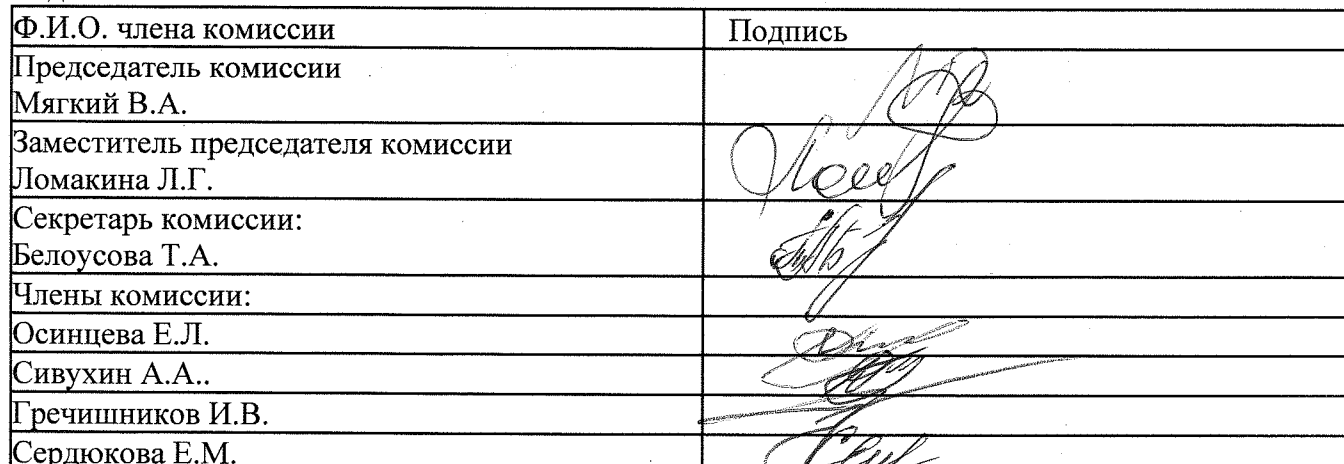 Ф.И.О. члена комиссии
Подпись
Председатель комиссии
Мягкий В.А.
Заместитель председателя комиссии
Ломакина Л.Г.
Секретарь комиссии:
Белоусова Т.А.
Члены комиссии:
Осинцева Е.Л.
Сивухин А.А..
Гречишников И.В.
Сердюкова Е.М.